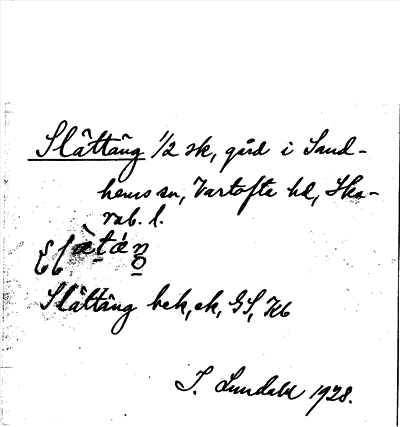 Slättäng 1/2 sk, gård i Sand-
hems sn, Vartofta hd, Ska-
rab. l.
Slättäng bek, ek, GS, Kb
I. Lundahl 1928.